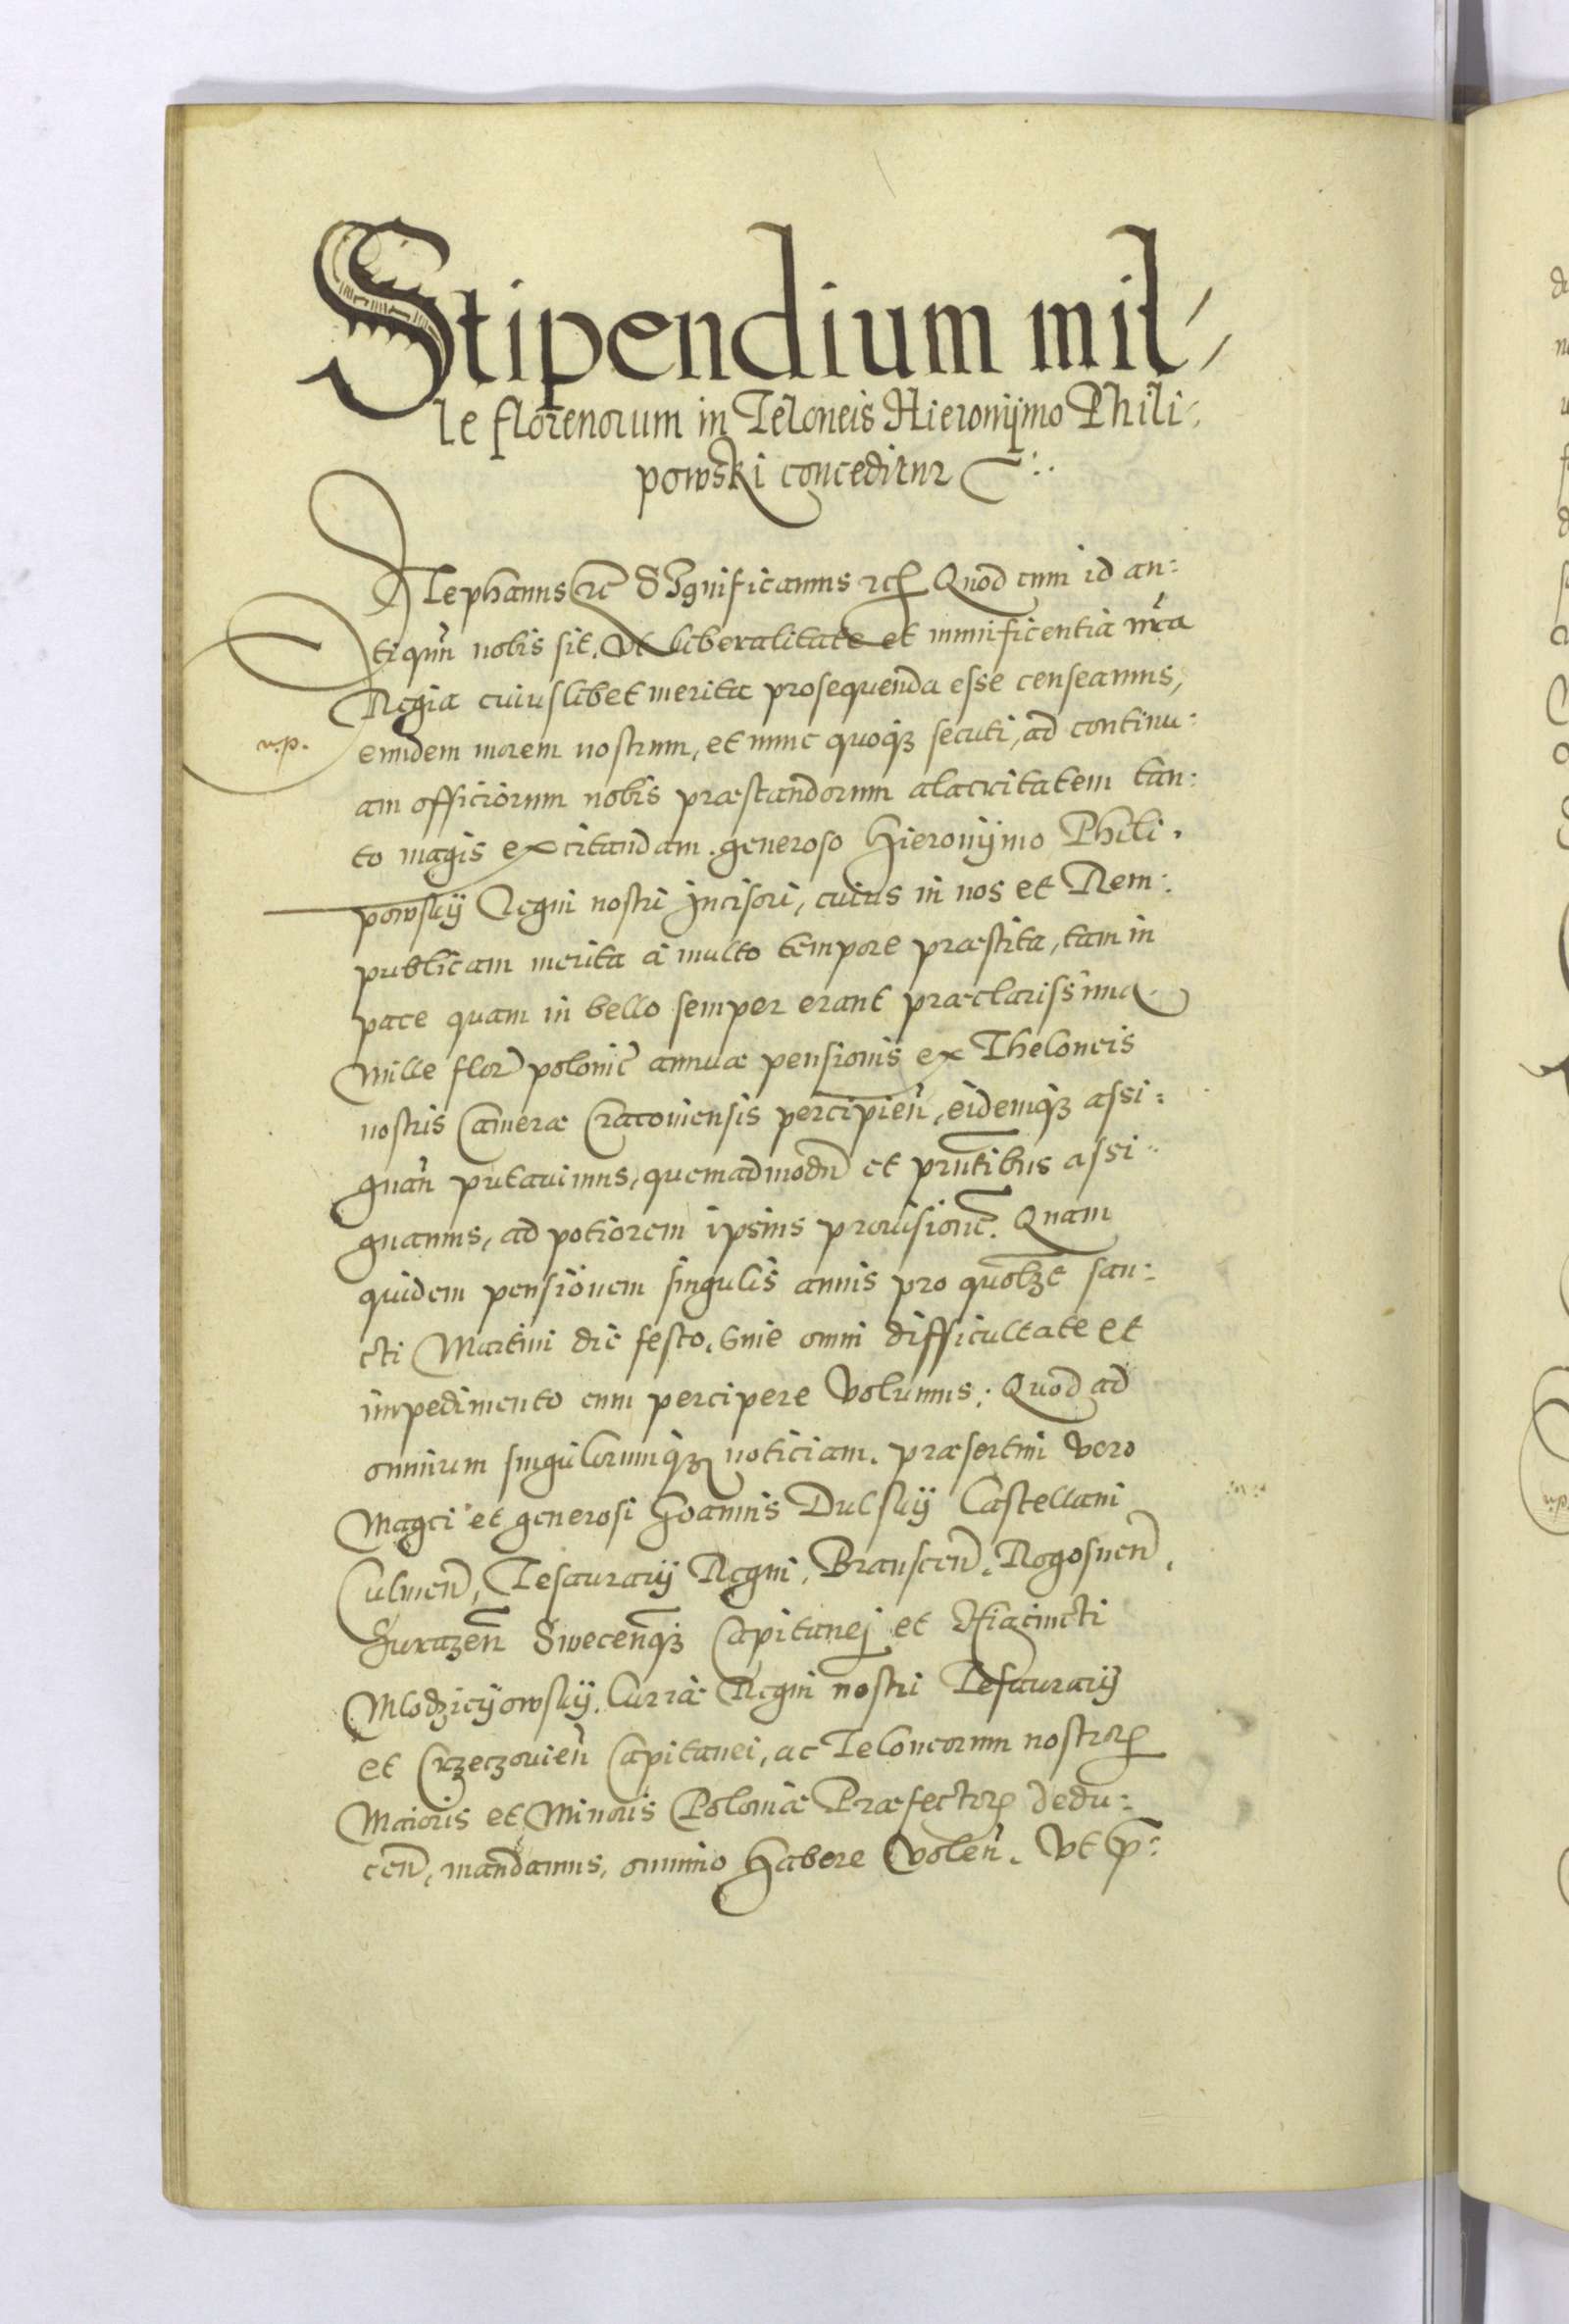 Stipendium mil-
le florenorum in Teloneis Hieronijmo Phili-
powski conceditur
Stephanus etc Significamus etc Quod cum id an-
tiquũ nobis sit, Vt liberalitate et munificentia nr̃a
Regia cuiuslibet merita prosequenda esse censeamus,
n.p.
eundem morem nostrum, et nunc quoqʒ secuti, ad continu-
am officiorum nobis præstandorum alacritatem tan-
to magis excitandam. generoso Hieronijmo Phili-
powskij Regni nostri Incisori, cuius in nos et Rem-
publicam merita à multo tempore præstita, tam in
pace quam in bello semper erant præclarissima.
Mille flor̃ polonic̃ annuæ pensionis ex Theloneis
nostris Cameræ Cracoviensis percipien̄, eidemqʒ assi-
gnan̄ putavimus, quemadmodũ et pn̄tibus assi-
gnamus, ad potiorem ipsius provisionẽ. Quam
quidem pensionem singulis annis pro quolʒt san-
cti Martini die festo, sine omni difficultate et
impedimento eum percipere Volumus; Quod ad
omnium singulorumqʒ noticiam. præsertim vero
Magci et generosi Joannis Dulskij Castellani
Culmen̄, Tesaurarij Regni, Branscen̄. Rogosnen̄.
Surazen̄ Swecen̄qʒ Capitanej et Hiacincti
Mlodzieijowskij. Curiæ Regni nostri Tesaurarij
et Crzeczovien̄ Capitanei, ac Teloneorum nostroꝝ
Maioris et Minoris Poloniæ Præfectoꝝ dedu-
cen̄, mandamus, omnino habere Volen̄. Vt p̱-